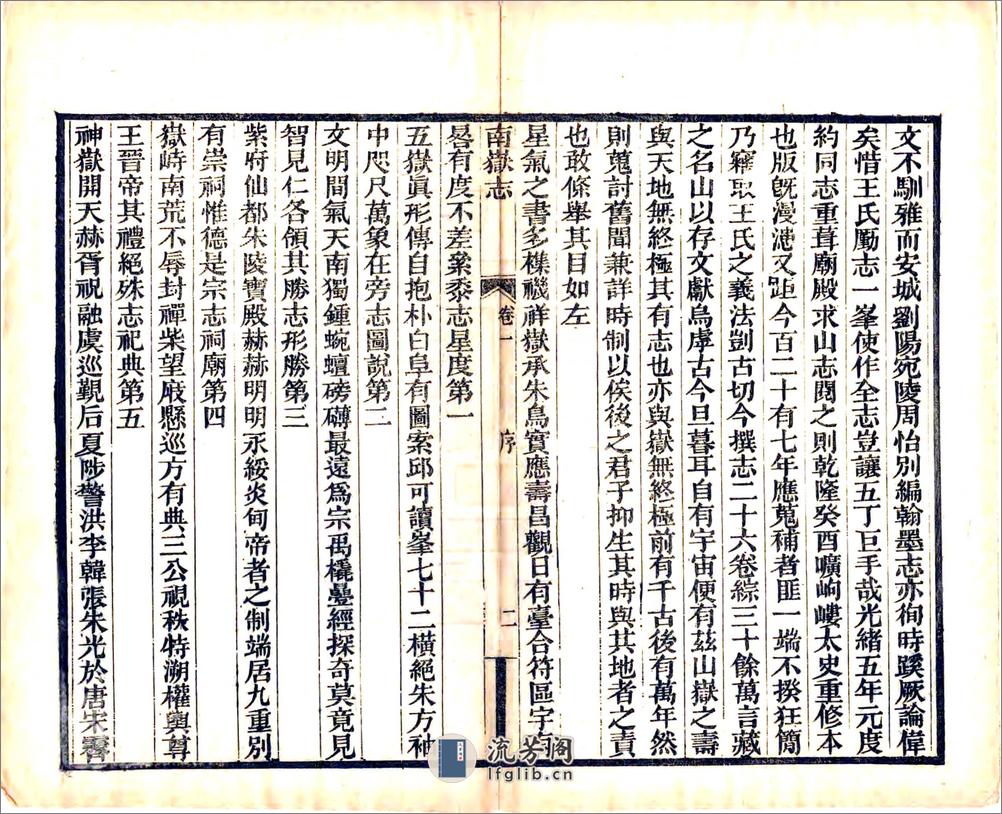 文不馴雅而安城劉陽宛陵周怡別編翰墨志亦徇時蹊厥論偉
矣惜王氏勵志一峯使作全志豈讓五丁巨手哉光緒五年元度
約同志重葺廟殿求山志閱之則乾隆癸酉曠岣嶁太史重修本
也版旣漫漶又距今百二十有七年應蒐補者匪一端不揆狂簡
乃竊取王氏之義法剴古切今撰志二十六卷綜三十餘萬言藏
之名山以存文獻烏虖古今旦暮耳自有宇宙便有茲山嶽之壽
與天地無終極其有志也亦與嶽無終極前有千古後有萬年然
則蒐討舊聞兼詳時制以俟後之君子抑生其時與其地者之責
也敢條舉其目如左
星氣之書多樵禨祥嶽承朱鳥實應壽昌觀日有臺合符區宇
南嶽志 卷一 序 二
晷有度不差絫黍志星度第一
五嶽眞形傳自抱朴白阜有圖索邱可讀峯七十二橫絕朱方袖
中咫尺萬象在旁志圖說第二
文明閒氣天南獨鍾蜿蟺磅礴最遠爲宗禹橇曡經探奇莫竟見
智見仁各領其勝志形勝第三
紫府仙都朱陵寶殿赫赫明明永綏炎甸帝者之制端居九重別
有崇祠惟德是宗志祠廟第四
嶽峙南荒不辱封禪柴望庪懸巡方有典三公視秩特溯權輿尊
王晉帝其禮絕殊志祀典第五
神嶽開天赫胥祝融虞巡覲后夏陟警洪李韓張朱光於唐宋
流芳閣
lfglib.cn